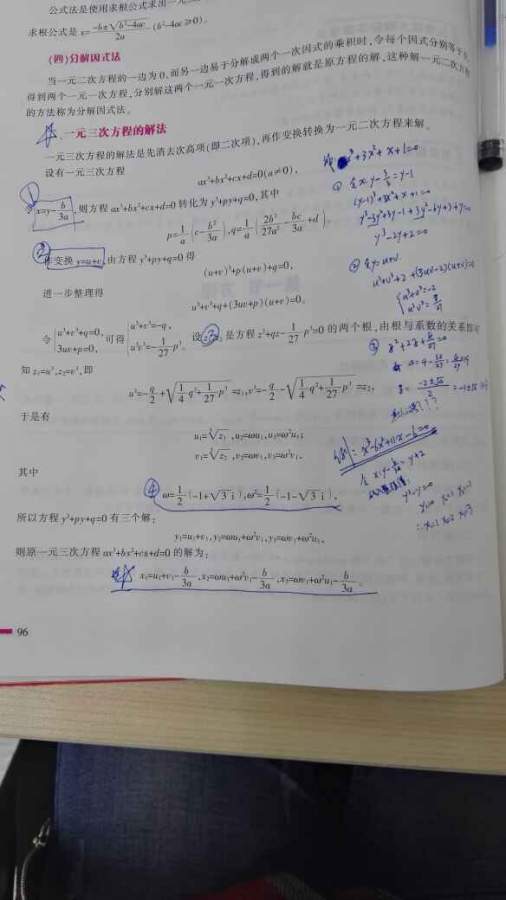 公式法是使用求根公式求出一元二
求根公式是 x=\frac{-b±\sqrt{b²-4ac}}{2a} (b²-4ac≥0)。
(四)分解因式法
当一元二次方程的一边为0,而另一边易于分解成两个一次因式的乘积时,令每个因式分别等于0,
得到两个一元一次方程,分别解这两个一元一次方程,得到的解就是原方程的解,这种解一元二次方程
的方法称为分解因式法。
一元三次方程的解法
一元三次方程的解法是先消去次高项(即二次项),再作变换转换为一元二次方程来解。
设有一元三次方程
ax³+bx²+cx+d=0(a≠0),
① 令x=y-\frac{b}{3a},则方程ax³+bx²+cx+d=0转化为y³+py+q=0,其中
p=\frac{1}{a}(c-\frac{b²}{3a}),q=\frac{1}{a}(\frac{2b³}{27a²}-\frac{bc}{3a}+d),
② 作变换y=u+v,由方程y³+py+q=0得
(u+v)³+p(u+v)+q=0,
进一步整理得
u³+v³+q+(3uv+p)(u+v)=0。
令{u³+v³+q=0, 3uv+p=0, 可得{u³+v³=-q, u³v³=-\frac{1}{27}p³。 设z₁,z₂是方程z²+qz-\frac{1}{27}p³=0的两个根,由根与系数的关系即可
知z₁=u³,z₂=v³,即
u³=-\frac{q}{2}+\sqrt{\frac{1}{4}q²+\frac{1}{27}p³}=z₁,v³=-\frac{q}{2}-\sqrt{\frac{1}{4}q²+\frac{1}{27}p³}=z₂,
于是有
u₁=\sqrt[3]{z₁},u₂=ωu₁,u₃=ω²u₁;
v₁=\sqrt[3]{z₂},v₂=ωv₁,v₃=ω²v₁。
其中
④ ω=\frac{1}{2}(-1+\sqrt{3}i),ω²=\frac{1}{2}(-1-\sqrt{3}i),
所以方程y³+py+q=0有三个解:
y₁=u₁+v₁,y₂=ωu₁+ω²v₁,y₃=ωv₁+ω²u₁,
则原一元三次方程ax³+bx²+cx+d=0的解为:
x₁=u₁+v₁-\frac{b}{3a},x₂=ωu₁+ω²v₁-\frac{b}{3a},x₃=ωv₁+ω²u₁-\frac{b}{3a}。
96
+3x²+x+1=0
y³-2y+2=0
② 令y=u+v
u³+v³+2+(3uv-2)(u+v)=0
③
x³-6x²+11x-6=0